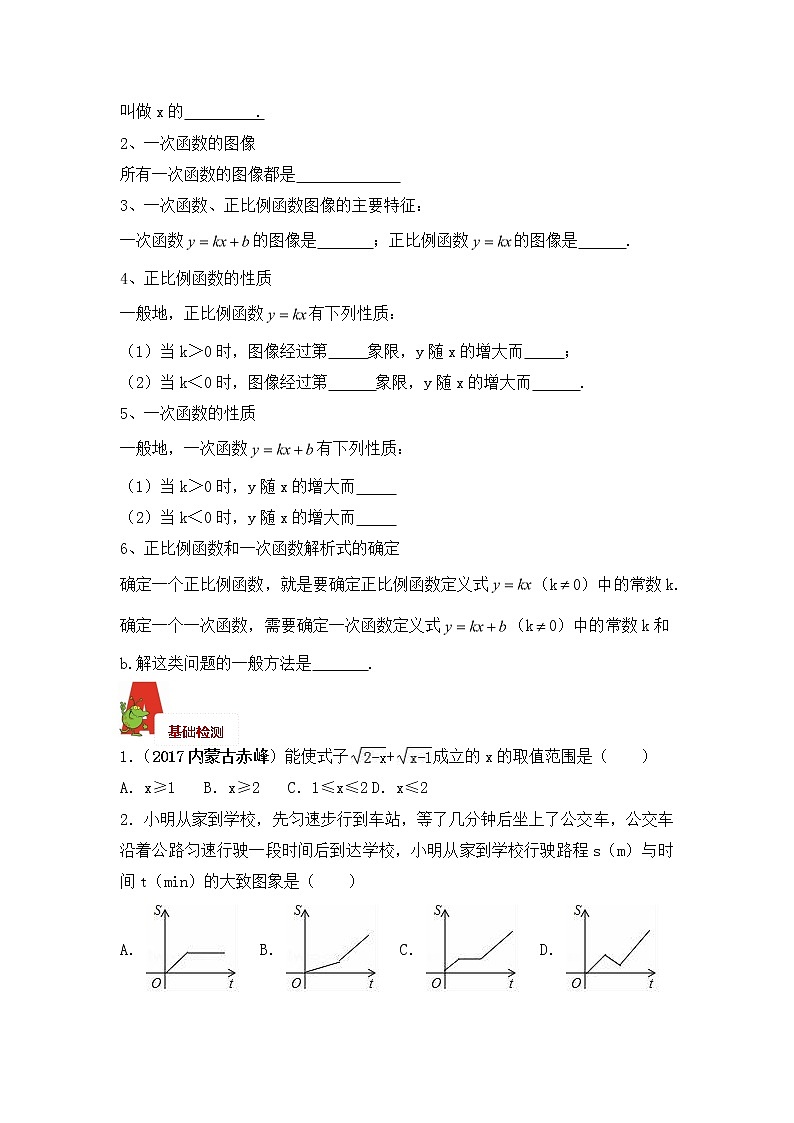 叫做 x 的_________.
2、一次函数的图像
所有一次函数的图像都是_____________
3、一次函数、正比例函数图像的主要特征：
一次函数 y = kx + b 的图像是_______；正比例函数 y = kx 的图像是______.
4、正比例函数的性质
一般地，正比例函数 y = kx 有下列性质：
（1）当 k＞0 时，图像经过第_____象限，y 随 x 的增大而_____；
（2）当 k＜0 时，图像经过第______象限，y 随 x 的增大而______.
5、一次函数的性质
一般地，一次函数 y = kx + b 有下列性质：
（1）当 k＞0 时，y 随 x 的增大而_____
（2）当 k＜0 时，y 随 x 的增大而_____
6、正比例函数和一次函数解析式的确定
确定一个正比例函数，就是要确定正比例函数定义式 y = kx（k≠0）中的常数 k.
确定一个一次函数，需要确定一次函数定义式 y = kx + b（k≠0）中的常数 k 和
b.解这类问题的一般方法是_______.
基础检测
1.（2017 内蒙古赤峰）能使式子√(2-x)+√(x-1)成立的 x 的取值范围是（　　）
A. x≥1 B. x≥2 C. 1≤x≤2 D. x≤2
2. 小明从家到学校，先匀速步行到车站，等了几分钟后坐上了公交车，公交车
沿着公路匀速行驶一段时间后到达学校，小明从家到学校行驶路程 s（m）与时
间 t（min）的大致图象是（　　）
A. S O t B. S O t C. S O t D. S O t